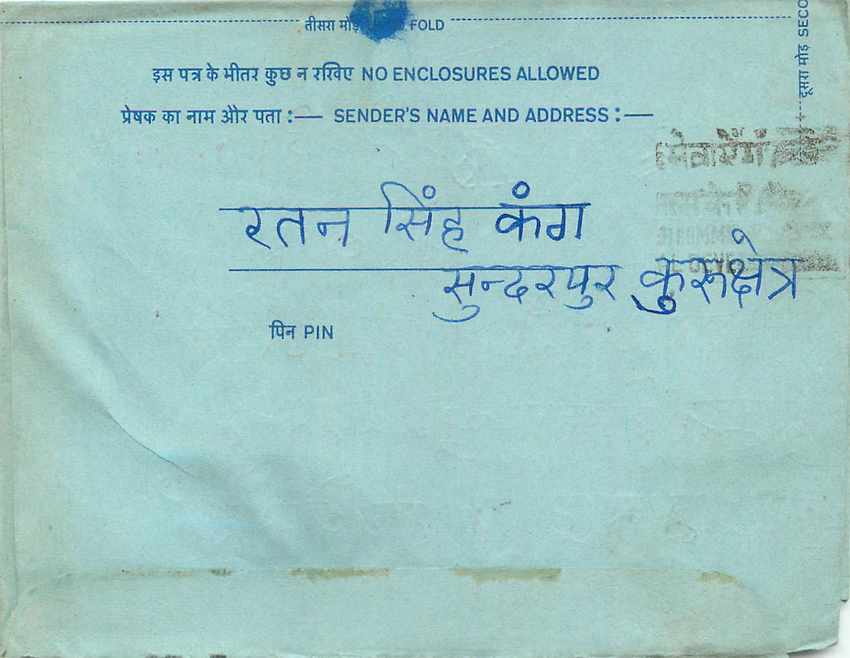 तीसरा मोड़ FOLD
दूसरा मोड़ SECO
इस पत्र के भीतर कुछ न रखिए NO ENCLOSURES ALLOWED
प्रेषक का नाम और पता :— SENDER'S NAME AND ADDRESS :—
रतन सिंह कंग
सुन्दरपुर कुरूक्षेत्र
पिन PIN